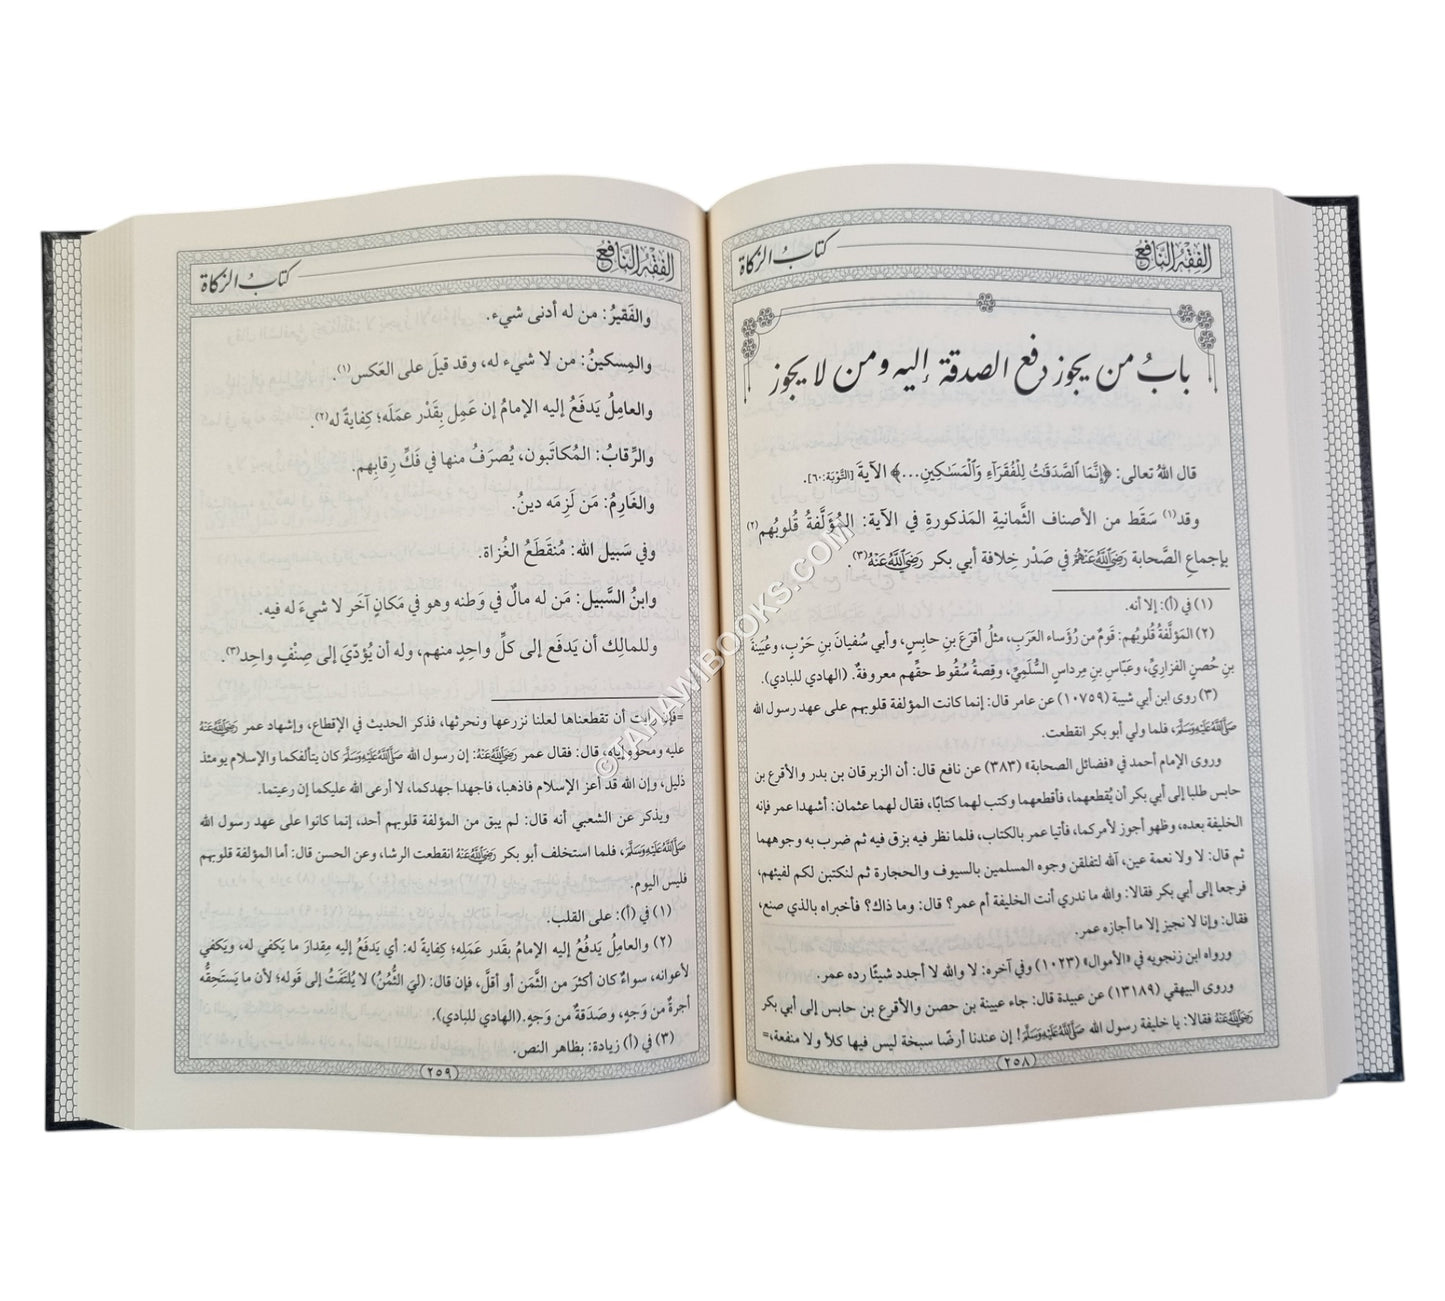 الفقه النافع
كتاب الزكاة
بابُ من يجوز دفع الصدقة إليه ومن لا يجوز
قال اللهُ تعالى: ﴿إِنَّمَا ٱلصَّدَقَٰتُ لِلْفُقَرَآءِ وَٱلْمَسَٰكِينِ...﴾ الآيةَ [التَّوْبَة: ٦٠].
وقد(١) سَقَط من الأصناف الثَّمانيةِ المَذكورةِ في الآية: المُؤَلَّفةُ قُلوبُهم(٢)
بإجماعِ الصَّحابة رَضِيَ اللَّهُ عَنْهُمْ في صَدْر خِلافة أبي بكر رَضِيَ اللَّهُ عَنْهُ(٣).
(١) في (أ): إلا أنه.
(٢) المؤلَّفةُ قُلوبُهم: قَومٌ من رُؤَساء العَرَبِ، مثلُ أقرَعَ بنِ حابِسٍ، وأبي سُفيانَ بنِ حَرْبٍ، وعُيَينَةَ
بنِ حُصنٍ الفزاريِّ، وعَبّاسِ بنِ مِرداسٍ السُّلَمِيِّ، وقِصةُ سُقُوط حقِّهم معروفةٌ. (الهادي للبادي).
(٣) روى ابن أبي شيبة (١٠٧٥٩) عن عامر قال: إنما كانت المؤلفة قلوبهم على عهد رسول الله
صَلَّى اللَّهُ عَلَيْهِ وَسَلَّمَ، فلما ولي أبو بكر انقطعت.
وروى الإمام أحمد في «فضائل الصحابة» (٣٨٣) عن نافع قال: أن الزبرقان بن بدر والأقرع بن
حابس طلبا إلى أبي بكر أن يُقطعهما، فأقطعهما وكتب لهما كتابًا، فقال لهما عثمان: أشهدا عمر فإنه
الخليفة بعده، وظهو أجوز لأمركما، فأتيا عمر بالكتاب، فلما نظر فيه بزق فيه ثم ضرب به وجوههما
ثم قال: لا ولا نعمة عين، آلله لتفلقن وجوه المسلمين بالسيوف والحجارة ثم لنكتبن لكم لفيئهم،
فرجعا إلى أبي بكر فقالا: والله ما ندري أنت الخليفة أم عمر؟ قال: وما ذاك؟ فأخبراه بالذي صنع،
فقال: وإنا لا نجيز إلا ما أجازه عمر.
ورواه ابن زنجويه في «الأموال» (١٠٢٣) وفي آخره: لا والله لا أجدد شيئًا رده عمر.
وروى البيهقي (١٣١٨٩) عن عبيدة قال: جاء عيينة بن حصن والأقرع بن حابس إلى أبي بكر
رَضِيَ اللَّهُ عَنْهُ فقالا: يا خليفة رسول الله صَلَّى اللَّهُ عَلَيْهِ وَسَلَّمَ! إن عندنا أرضًا سبخة ليس فيها كلأ ولا منفعة،=
(٢٥٨)
الفقه النافع
كتاب الزكاة
والفَقيرُ: من له أدنى شيء.
والمِسكينُ: من لا شيء له، وقد قيلَ على العَكس(١).
والعامِلُ يَدفَعُ إليه الإمامُ إن عَمِل بِقَدْر عمَلَه؛ كِفايةً له(٢).
والرِّقابُ: المُكاتَبون، يُصرَفُ منها في فَكِّ رِقابِهم.
والغَارِمُ: مَن لَزِمَه دينُ.
وفي سَبيل الله: مُنقَطَعُ الغُزاة.
وابنُ السَّبيل: مَن له مالٌ في وَطنه وهو في مَكانٍ آخَر لا شيءَ له فيه.
وللمالِك أن يَدفَع إلى كلِّ واحِدٍ منهم، وله أن يُؤدّيَ إلى صِنْفٍ واحِدٍ(٣).
=فإن رأيت أن تقطعناها لعلنا نزرعها ونحرثها، فذكر الحديث في الإقطاع، وإشهاد عمر رَضِيَ اللَّهُ عَنْهُ
عليه ومحوه إياه، قال: فقال عمر رَضِيَ اللَّهُ عَنْهُ: إن رسول الله صَلَّى اللَّهُ عَلَيْهِ وَسَلَّمَ كان يتألفكما والإسلام يومئذ
ذليل، وإن الله قد أعز الإسلام فاذهبا، فاجهدا جهدكما، لا أرعى الله عليكما إن رعيتما.
ويذكر عن الشعبي أنه قال: لم يبق من المؤلفة قلوبهم أحد، إنما كانوا على عهد رسول الله
صَلَّى اللَّهُ عَلَيْهِ وَسَلَّمَ، فلما استخلف أبو بكر رَضِيَ اللَّهُ عَنْهُ انقطعت الرشا، وعن الحسن قال: أما المؤلفة قلوبهم
فليس اليوم.
(١) في (أ): على القلب.
(٢) والعامِلُ يَدفُعُ إليه الإمامُ بقَدر عَمَلِه؛ كِفايةً له: أي يَدفَعُ إليه مِقدارَ ما يَكفي له، ويَكفي
لأعوانه، سواءٌ كان أكثرَ من الثَّمَن أو أقلَّ، فإن قال: (لِيَ الثُّمُنُ) لا يُلتَفَتُ إلى قَوله؛ لأن ما يَستَحِقُّه
أجرةٌ من وَجهٍ، وصَدَقةٌ من وَجهٍ. (الهادي للبادي).
(٣) في (أ) زيادة: بظاهر النص.
(٢٥٩)
©TAHAWIBOOKS.COM